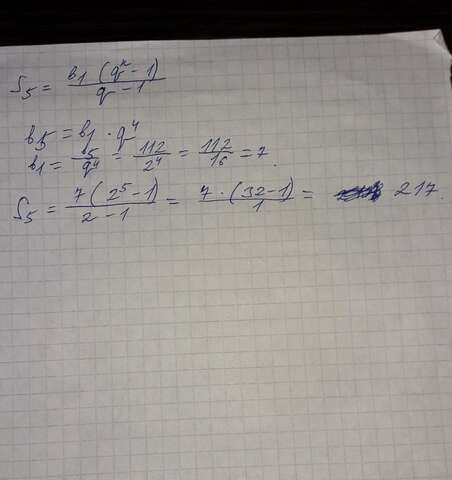 S₅ = b₁ (qⁿ - 1) / q - 1
b₅ = b₁ · q⁴
b₁ = b₅ / q⁴ = 112 / 2⁴ = 112 / 16 = 7.
S₅ = 7 (2⁵ - 1) / 2 - 1 = 7 · (32 - 1) / 1 = 217.